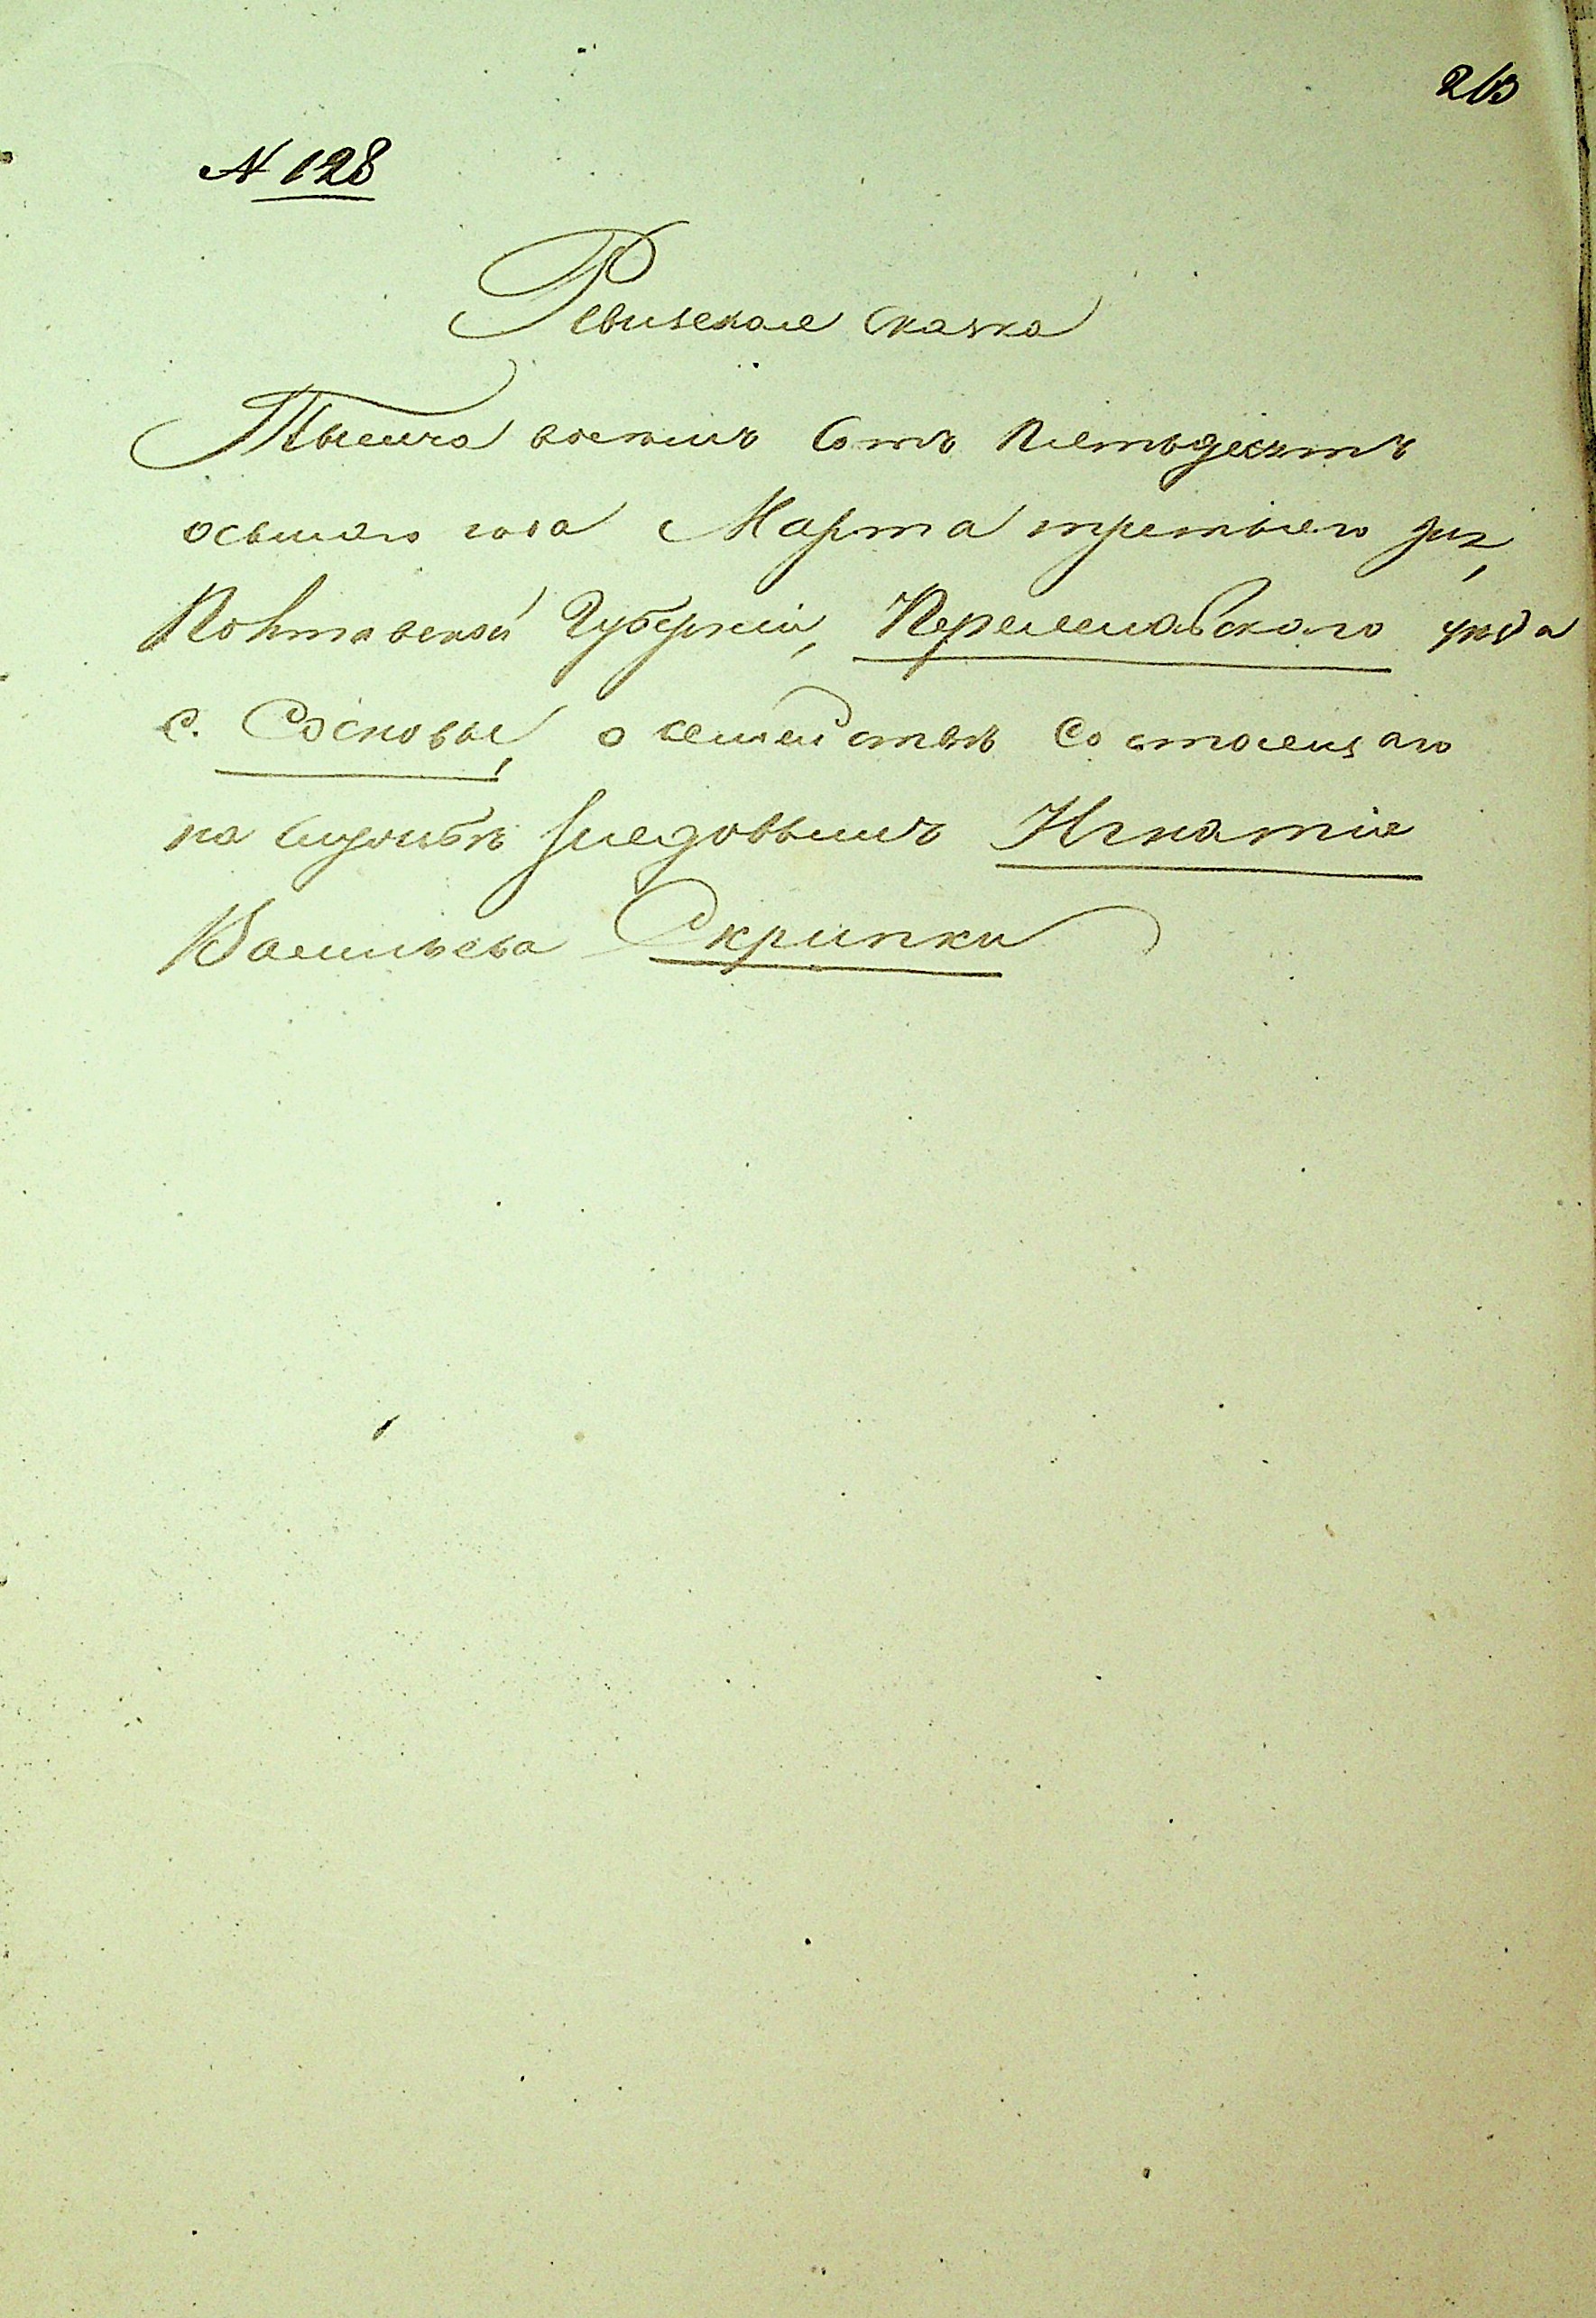 213
N 128
Ревизская сказка
Тысяча восемь сотъ пятьдесятъ
осьмаго года Марта третьяго дня,
Полтавской Губерніи, Переяславскаго уѣзда
с. Сосновы, о семействѣ состоящаго
на службѣ рядовымъ Игнатія
Васильева Скрипки